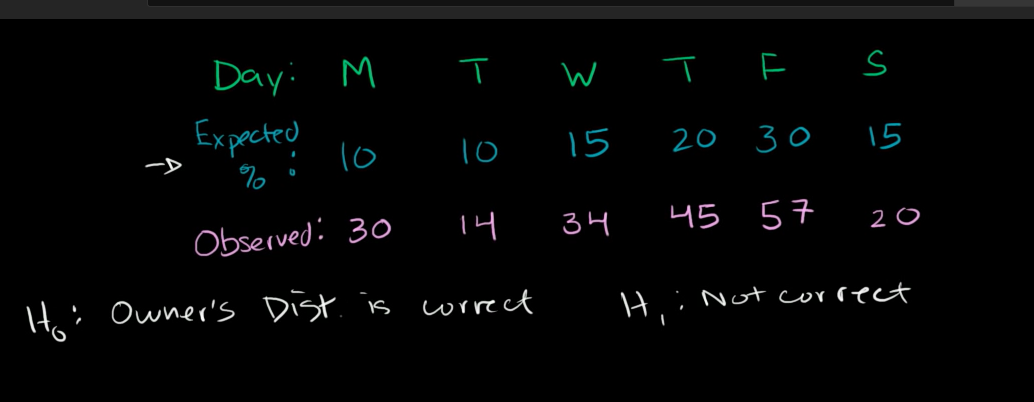 Day: M T W T F S
Expected %: 10 10 15 20 30 15
Observed: 30 14 34 45 57 20
H₀: Owner's Dist. is correct H₁: Not correct